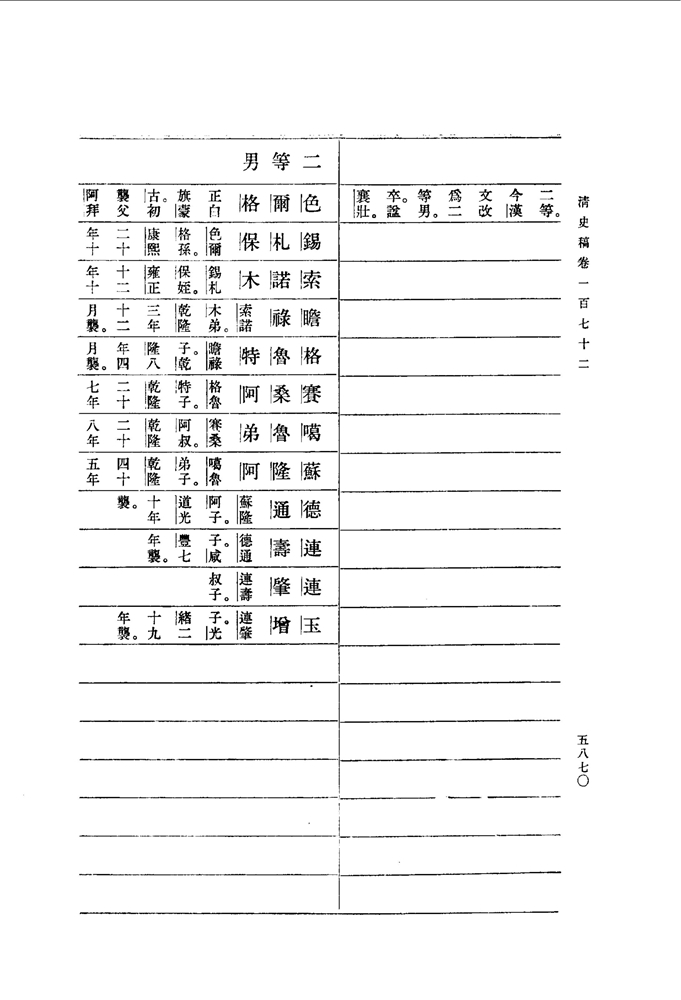 清史稿卷一百七十二
五八七〇
二等。今漢文改爲二等男。卒。諡襄壯。
二等男
色爾格 正白旗蒙古。初襲父阿拜
錫札保 色爾格孫。康熙二十年十
索諾木 錫札保姪。雍正十二年十
瞻祿 索諾木弟。乾隆三年十二月襲。
格魯特 瞻祿子。乾隆八年四月襲。
賽桑阿 格魯特子。乾隆二十七年
噶魯弟 賽桑阿叔。乾隆二十八年
蘇隆阿 噶魯弟子。乾隆四十五年
德通 蘇隆阿子。道光十年襲。
連壽 德通子。咸豐七年襲。
連肇 連壽叔子。
玉增 連肇子。光緒二十九年襲。